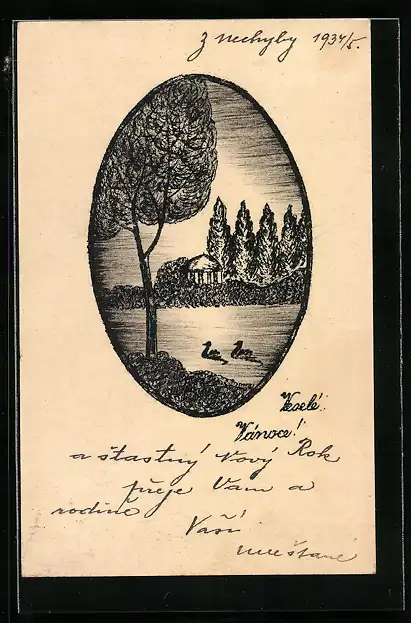 z nechyby 1934/5.
Veselé
Vánoce!
a šťastný Nový Rok
přeje Vam a
rodině
Vaší